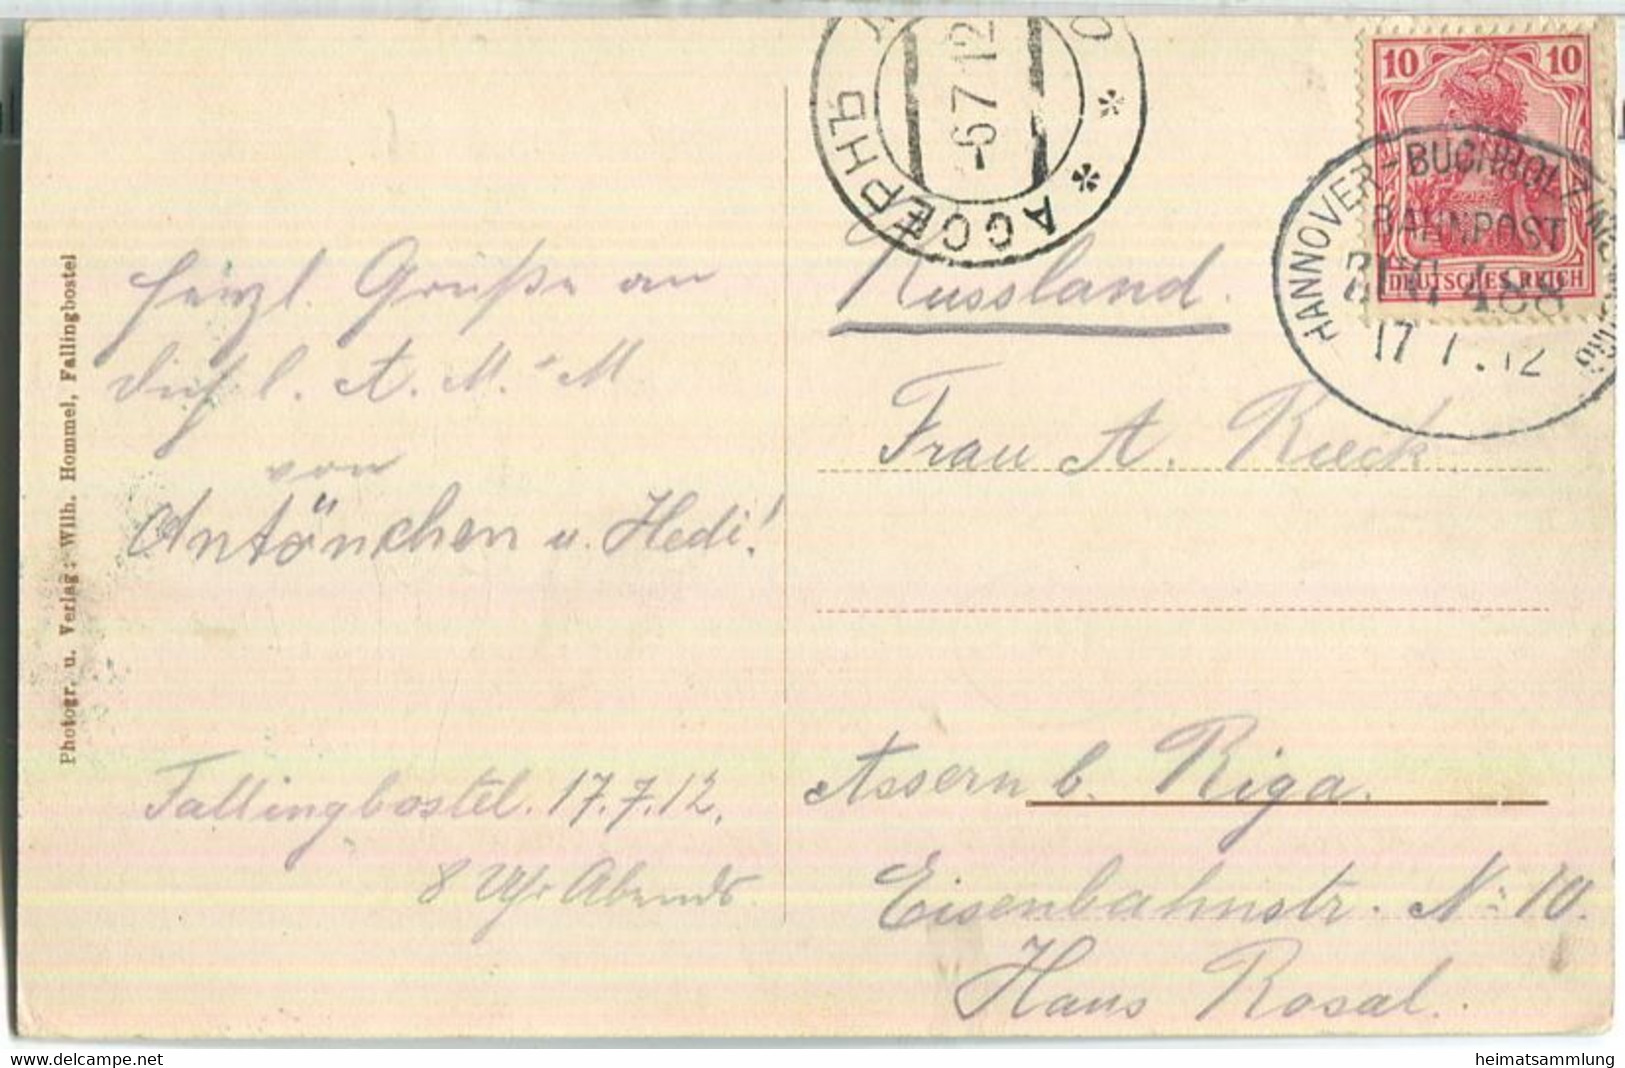 Photogr. u. Verlag: Wilh. Hommel, Fallingbostel
herzl. Grüße an
dich l. A. M. M
von
Antönchen u. Hedi!
Fallingbostel. 17.7.12.
8 Uhr Abends.
АССЕРНЪ
-6 7 12
10 10
DEUTSCHES REICH
HANNOVER-BUCHHOLZ
BAHNPOST
ZUG 488
17 7.12
Russland.
Frau A. Rieck.
Assern b. Riga.
Eisenbahnstr. No 10.
Haus Rosal.
delcampe.net
heimatsammlung